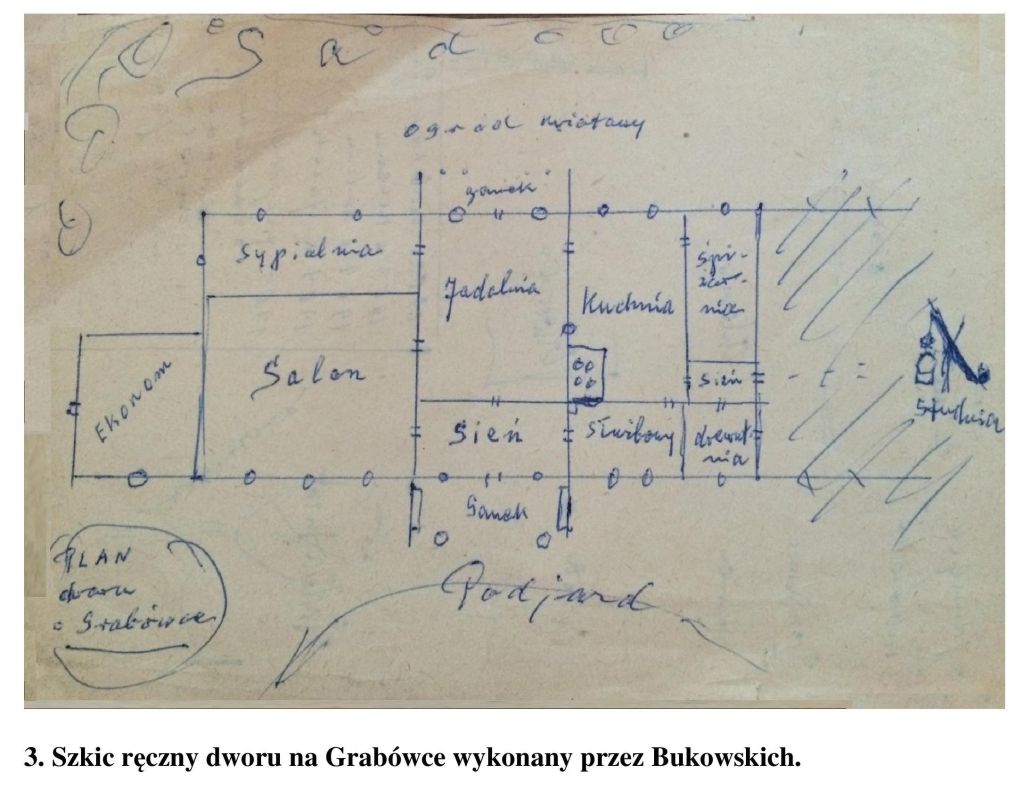 Sad
ogród kwiatowy
"ganek"
Sypialnia
Jadalnia
Kuchnia
Śpi-
żar-
nia
Ekonom
Salon
sień
Studnia
Sień
Służbowy
drewut
nia
Ganek
PLAN
dworu
Grabówce
Podjazd
3. Szkic ręczny dworu na Grabówce wykonany przez Bukowskich.